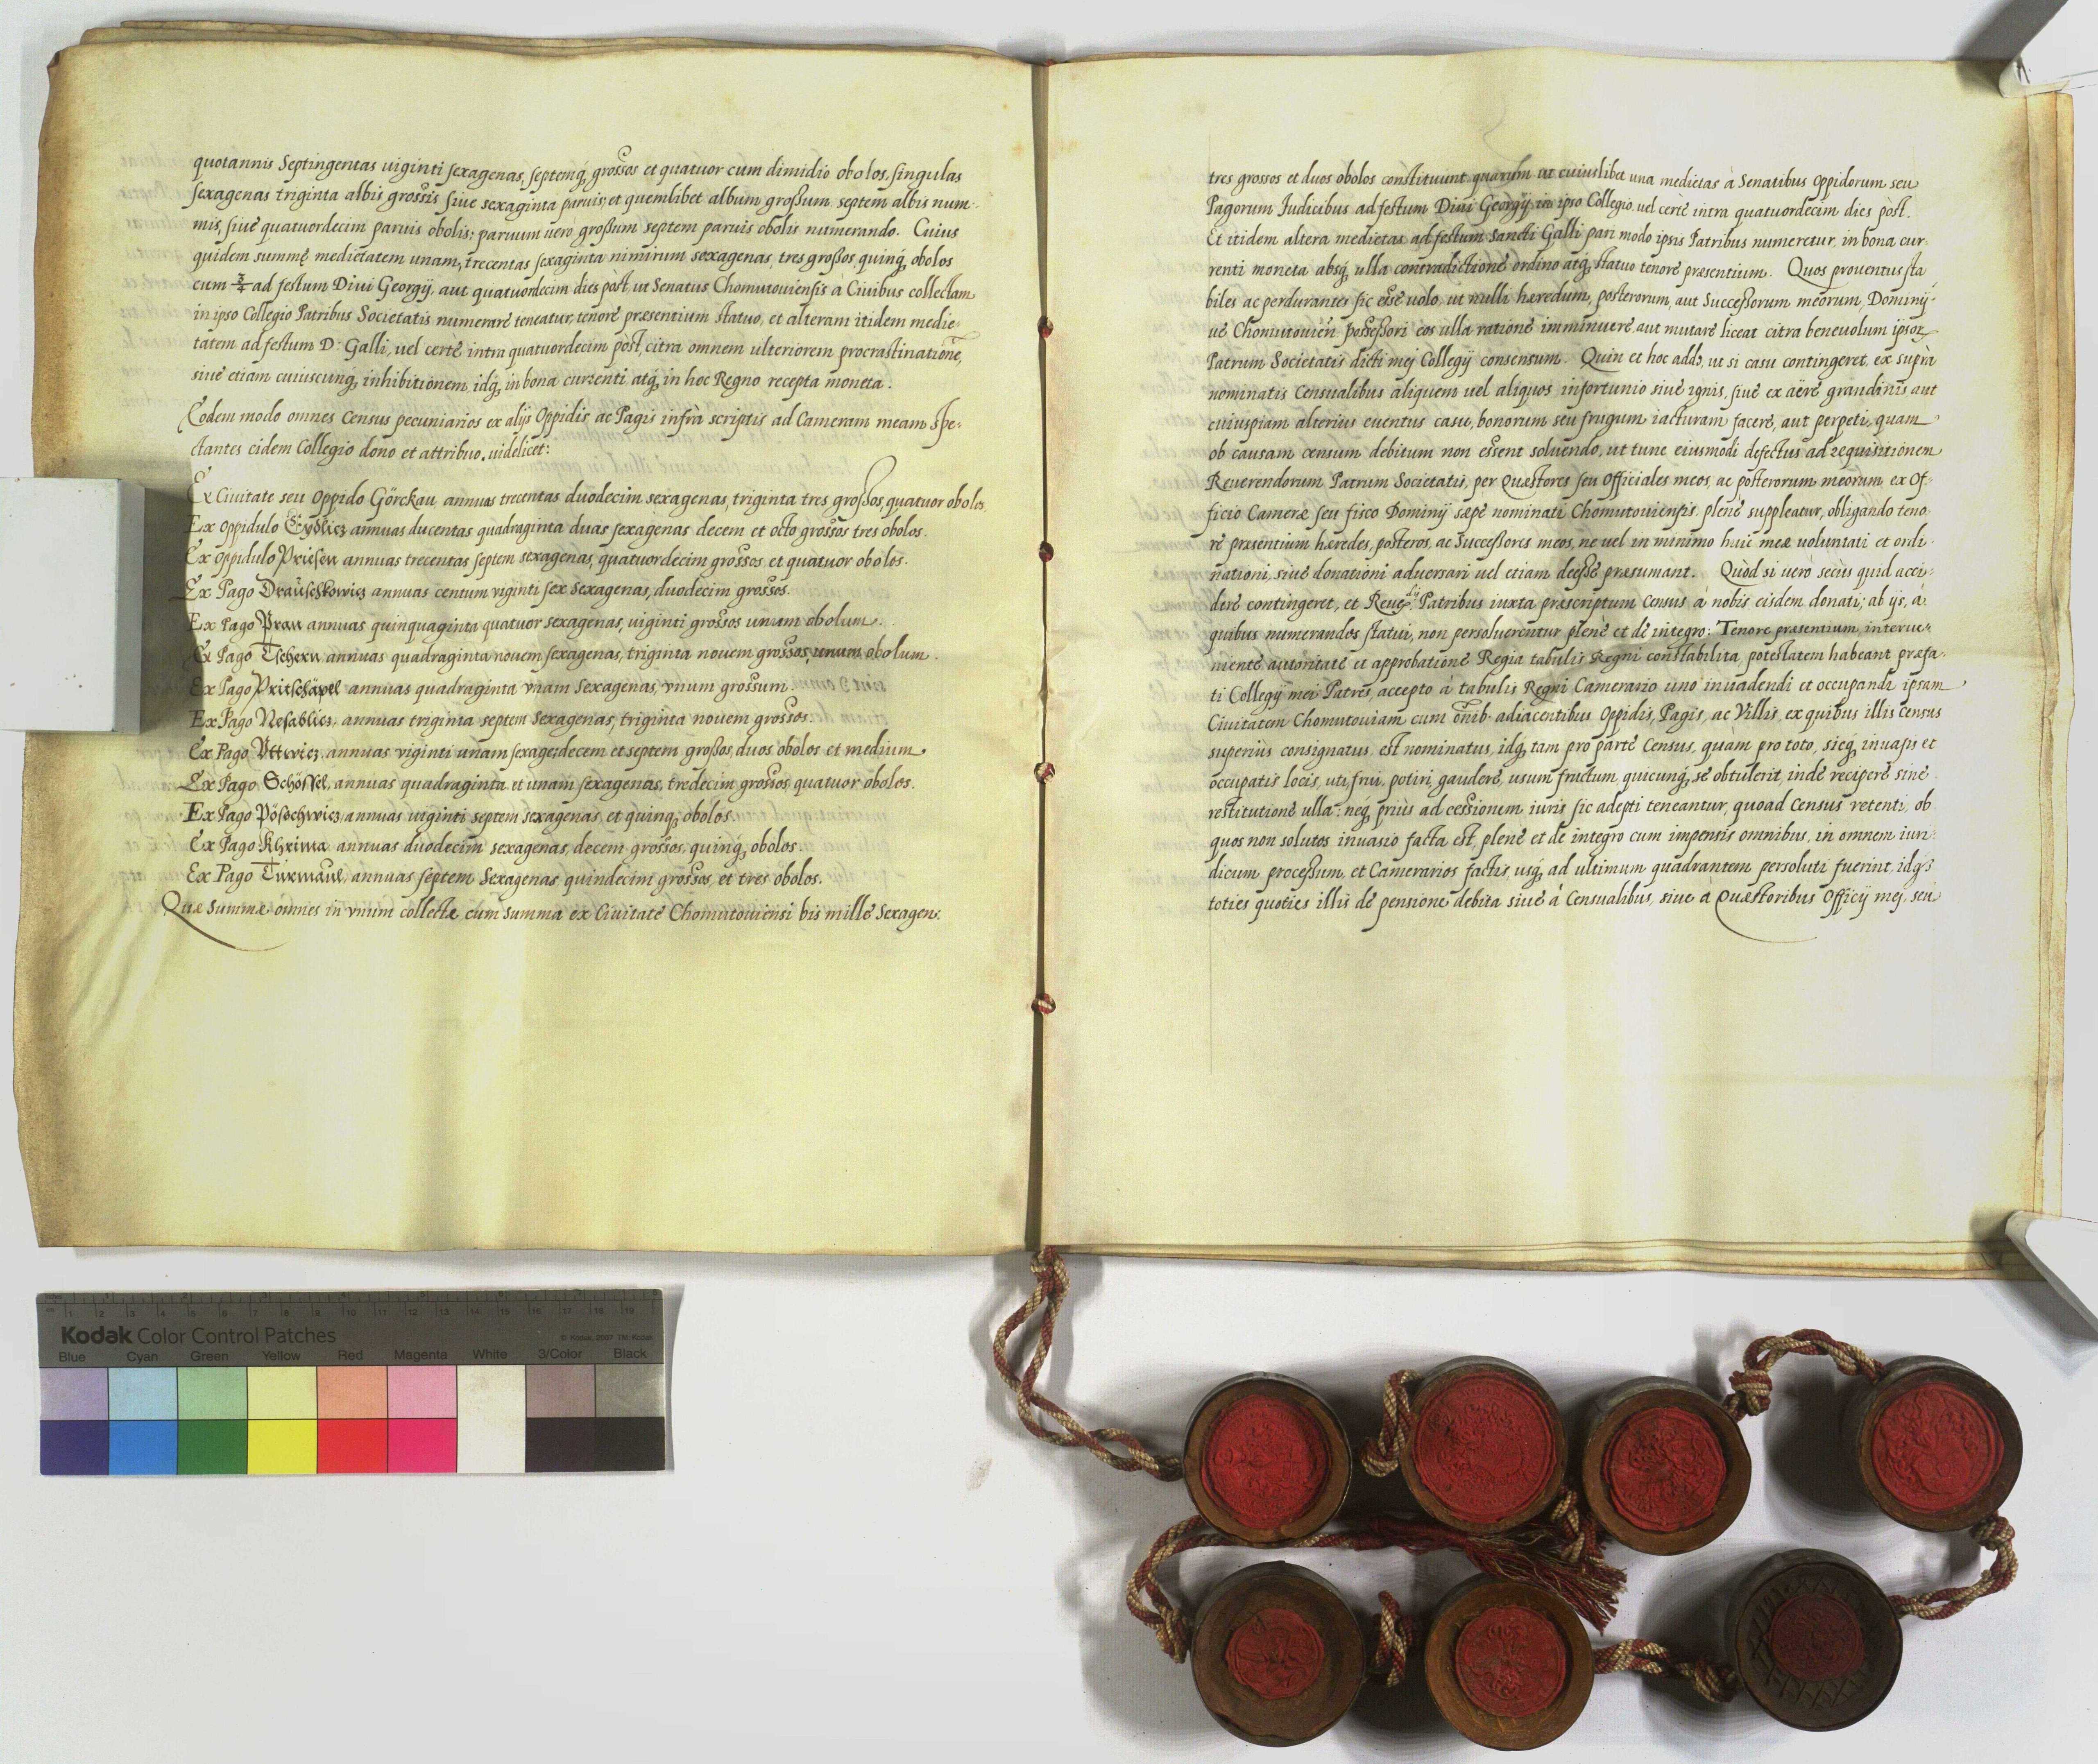 quotannis Septingentas uiginti sexagenas, septemq́, grossos et quatuor cum dimidio obolos, singulas
sexagenas triginta albis grossis siue sexaginta paruis, et quemlibet album grossum septem albis num-
mis, siue quatuordecim paruis obolis; paruum uero grossum septem paruis obolis numerando. Cuius
quidem summę medietatem unam, trecentas sexaginta nimirum sexagenas, tres grossos, quinq́, obolos
cum ¾ ad festum Diui Georgij, aut quatuordecim dies pòst, ut Senatus Chomutouiensis à Ciuibus collectam
in ipso Collegio Patribus Societatis numerare teneatur, tenore præsentium statuo, et alteram itidem medie-
tatem ad festum D: Galli, uel certè intra quatuordecim pòst, citra omnem ulteriorem procrastinationē,
siue etiam cuiuscunq́, inhibitionem, idq́, in bona currenti atq́, in hoc Regno recepta moneta.
Eodem modo omnes Census pecuniarios ex alijs Oppidis ac Pagis infrà scriptis ad Cameram meam Spe-
ctantes eidem Collegio dono et attribuo, uidelicet:
Ex Ciuitate seu Oppido Görckau annuas trecentas duodecim sexagenas, triginta tres grossos, quatuor obolos.
Ex Oppidulo Eydlicz annuas ducentas quadraginta duas sexagenas decem et octo grossos tres obolos.
Ex Oppidulo Priesen annuas trecentas septem sexagenas, quatuordecim grossos et quatuor obolos.
Ex Pago Drauschkowicz annuas centum viginti sex Sexagenas, duodecim grossos.
Ex Pago Pran annuas quinquaginta quatuor sexagenas, uiginti grossos unum obolum.
Ex Pago Tschern annuas quadraginta nouem sexagenas, triginta nouem grossos, unum obolum.
Ex Pago Pritschapel annuas quadraginta vnam Sexagenas, vnum grossum.
Ex Pago Nesablicz, annuas triginta septem Sexagenas, triginta nouem grossos.
Ex Pago Vttwicz, annuas viginti unam sexag: decem et septem grossos, duos obolos et medium
Ex Pago Schössel, annuas quadraginta et unam sexagenas, tredecim grossos, quatuor obolos.
Ex Pago Pöschwicz, annuas uiginti septem sexagenas, et quinq́, obolos.
Ex Pago Kheima annuas duodecim sexagenas, decem grossos, quinq́, obolos.
Ex Pago Turmaul, annuas septem Sexagenas, quindecim grossos, et tres obolos.
Quæ Summæ omnes in vnum collectæ cum Summa ex Ciuitate Chomutouiensi bis mille Sexagen:
tres grossos et duos obolos constituunt quarum ut cuiuslibet una medietas à Senatibus Oppidorum seu
Pagorum Iudicibus ad festum Diui Georgij in ipso Collegio, uel certè intra quatuordecim dies pòst.
Et itidem altera medietas ad festum Sancti Galli pari modo ipsis Patribus numeretur, in bona cur-
renti moneta absq́, ulla contradictione ordino atq́, statuo tenore præsentium. Quos prouentus sta
biles ac perdurantes sic esse uolo, ut nulli hæredum, posterorum, aut Successorum meorum, Dominij-
ue Chomutouien̄ possessori eos ulla ratione imminuere, aut mutare liceat citra beneuolum ipsoꝝ
Patrum Societatis dicti mej Collegij consensum. Quin et hoc addo, ut si casu contingeret, ex suprà
nominatis Censualibus aliquem uel aliquos, infortunio siue ignis, siue ex aëre grandinis aut
cuiuspiam alterius euentus casu, bonorum seu frugum iacturam facere, aut perpeti, quam
ob causam censum debitum non essent soluendo, ut tunc eiusmodi defectus ad requisitionem
Reuerendorum Patrum Societatis, per Quæstores seu Officiales meos, ac posterorum meorum, ex Of-
ficio Cameræ seu fisco Dominij sæpe nominati Chomutouiensis, plenè suppleatur, obligando teno-
re præsentium hæredes, posteros, ac Successores meos, ne uel in minimo huic meæ uoluntati et ordi-
nationi, siue donationi aduersari uel etiam deesse præsumant. Quòd si uerò secùs quid acci-
dere contingeret, et Reueᵈⁱˢ Patribus iuxta præscriptum Census à nobis eisdem donati, ab ijs, à
quibus numerandos statui, non persoluerentur plenè et de integro: Tenore præsentium, interue-
niente autoritate et approbatione Regia tabulis Regni constabilita, potestatem habeant præfa-
ti Collegij mei Patres, accepto à tabulis Regni Camerario uno inuadendi et occupandi ipsam
Ciuitatem Chomutouiam cum om̄ib. adiacentibus Oppidis, Pagis, ac Villis, ex quibus illis census
superius consignatus, est nominatus, idq́, tam pro parte Census, quàm pro toto, sicq́, inuasis et
occupatis locis, uti, frui, potiri, gaudere, usum fructum, quicunq́, se obtulerit, inde recipere sine
restitutione ulla: neq́, priùs ad cessionem iuris sic adepti teneantur, quoad Census retenti, ob
quos non solutos inuasio facta est, plenè et de integro cum impensis omnibus, in omnem iuri-
dicum processum, et Camerarios factis, usq́, ad ultimum quadrantem persoluti fuerint, idq́3
toties quoties illis de pensione debita siue à Censualibus, siue à Quæstoribus Officij mej, seu
Kodak Color Control Patches
© Kodak, 2007 TM: Kodak
Blue Cyan Green Yellow Red Magenta White 3/Color Black
1 2 3 4 5 6 7 8 9 10 11 12 13 14 15 16 17 18 19